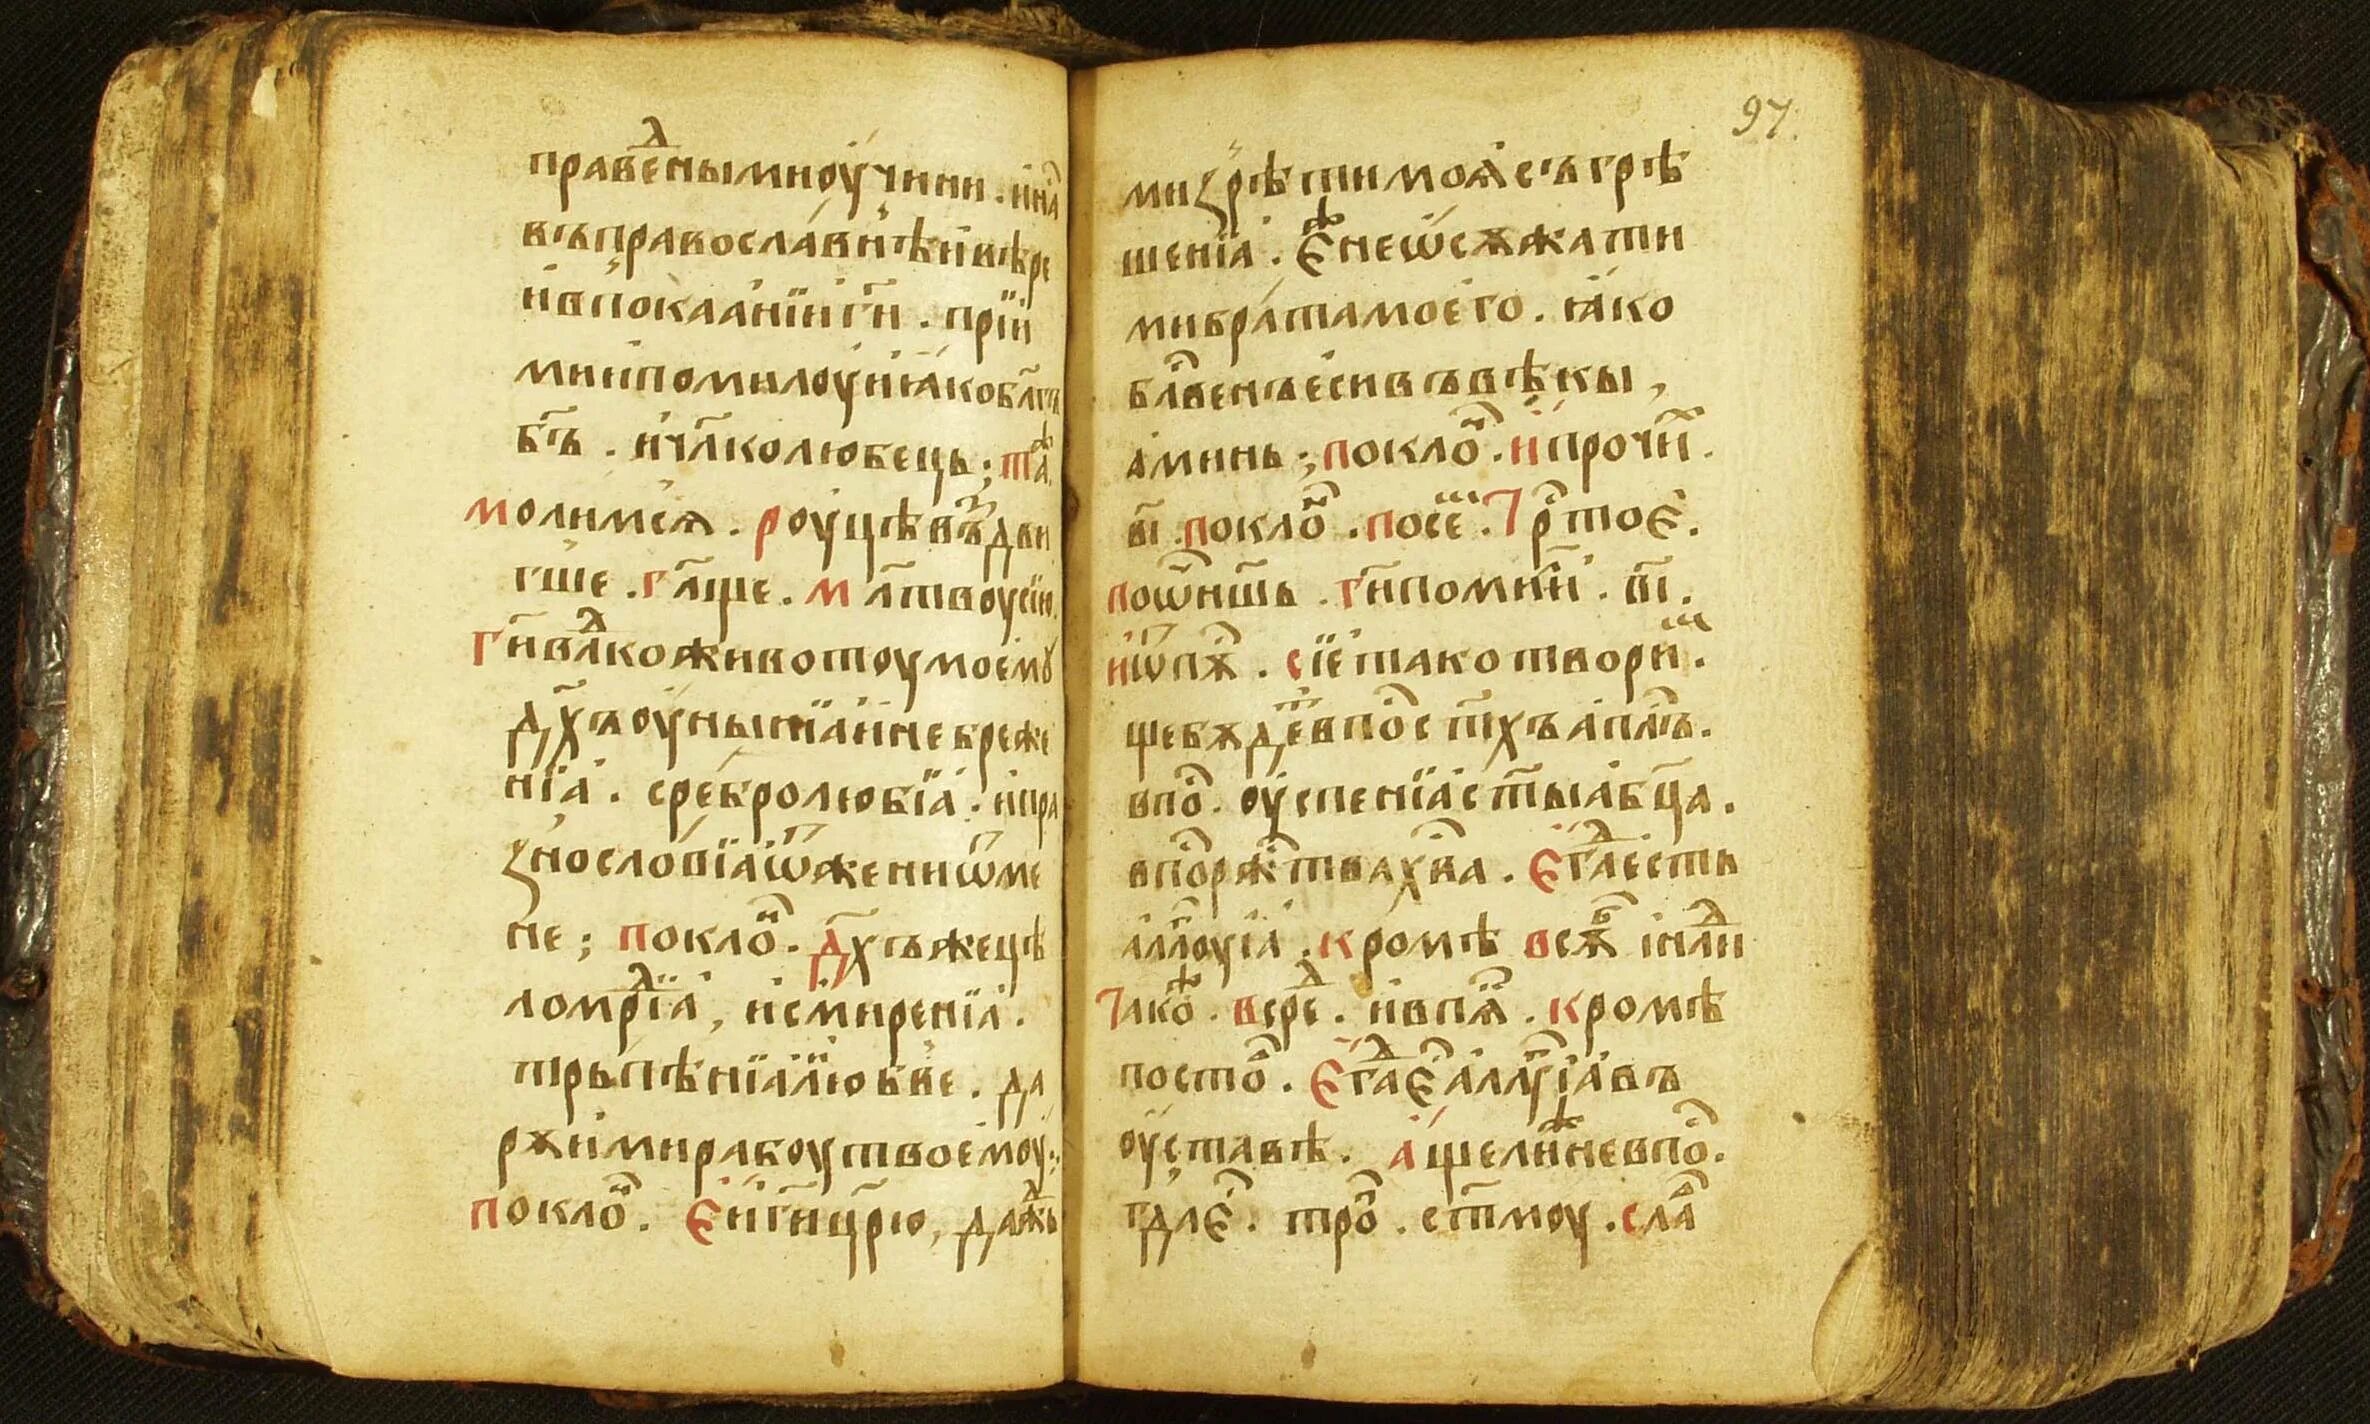 праведⷧ҇нымиоу҆чини . и҆на
въправосла́внѣи҆вѣре
и҆впокаа́нїиг҃и . прїи
мии҆помилоуи҆ꙗ҆кобл҃гъ
б҃ъ . и҆чл҃колюбець ; таⷤ҇
молимсѧ . роуцѣвъꙁⷣ҇ви
гше . гл҃ще . мл҃твоусїю .
г҃ивлⷣ҇коживотоумоемꙋ
дх҃ъоу҆ныни́їаи҆небреже
нїа . сребролюбїа . и҆пра
ꙁнословїаѿженѝѿме
не ; поклоⷩ҇ . дх҃ъжецѣ
ломрⷣ҇їа , и҆смиренїа .
трьпѣнїаи҆любве . да
рѫи҆мирабоутвоемоу ;
поклоⷩ҇ . Єи҆г҃ицр҃ю , даⷤ҇ь
97.
миꙁрѣтимоѧ҆съгрѣ
шенїа . Єⷤ҇неѡ҆сѫжати
мибратамоего . ꙗ҆ко
блⷭ҇венъе҆сивъвѣкы ,
а҆минь ; поклоⷩ҇ . и҆прочїиⷯ .
в҃і . поклоⷩ҇ . посеⷨ҇ . Трⷭ҇тоЄ .
поѡ҃ч҃ишь . г҃ипомиⷧ҇и . в҃і .
и҆ѿпⷭ҇ѫ . сїетакотвориⷨ .
щебѫдеⷮ҇впоⷭ҇ст҃хъа҆пⷭ҇лъ .
впоⷭ҇ . оу҆спенїаст҃ыѧбц҃а .
впоⷭ҇рⷤ҇тваХв҃а . Єгⷣ҇ае҆сть
а҆лⷧ҇оуїа . кромѣ всѧⷦ҇ і҆нⷣ҇ли
Такоⷤ҇ . вереⷣ . и҆впѧⷦ҇ . кромѣ
постоⷡ҇ . Єгⷣ҇аЄⷭ҇а҆лⷧ҇їавъ
оу҆ставѣ . а҆щелиⷤ҇невпоⷭ҇ .
гдⷭ҇лЄ . троⷫ҇ . ст҃моу . слаⷡ҇